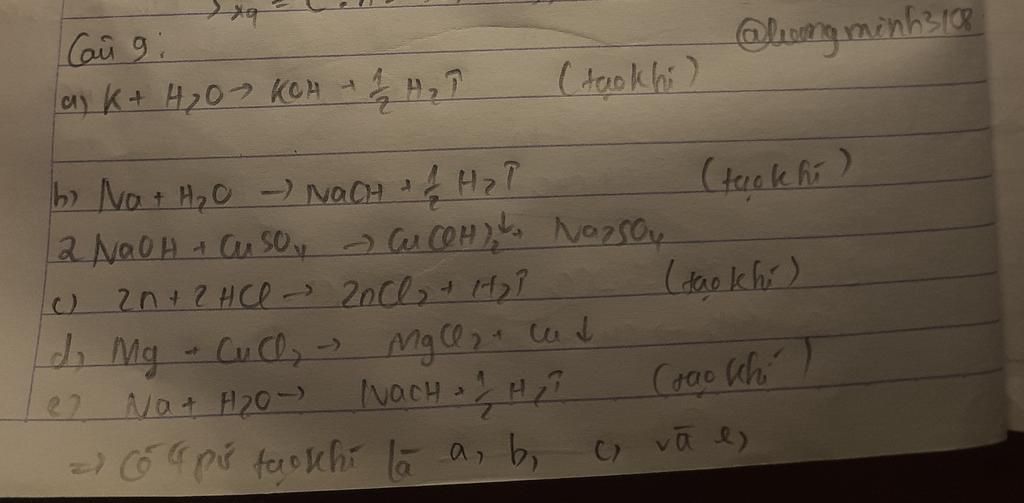 Câu 9:
@luongminh3108
a) K + H2O → KOH + 1/2 H2↑ (tạo khí)
b) Na + H2O → NaOH + 1/2 H2↑ (tạo khí)
2 NaOH + CuSO4 → Cu(OH)2↓ + Na2SO4
c) Zn + 2HCl → ZnCl2 + H2↑ (tạo khí)
d) Mg + CuCl2 → MgCl2 + Cu↓
e) Na + H2O → NaOH + 1/2 H2↑ (tạo khí)
=> Có 4 pứ tạo khí là a, b, c, và e,